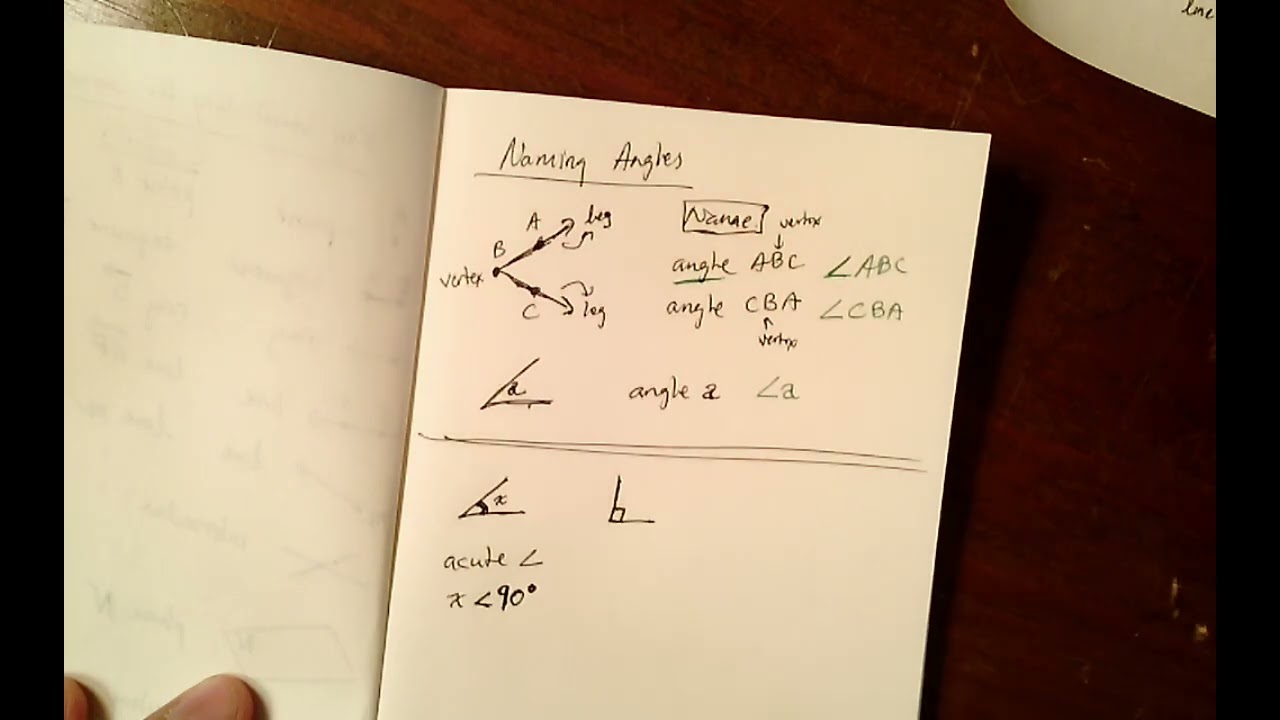 line
Naming Angles
A leg
B
vertex
C leg
Name vertex
angle ABC ∠ABC
angle CBA ∠CBA
vertex
a angle a ∠a
x
acute ∠
x < 90°